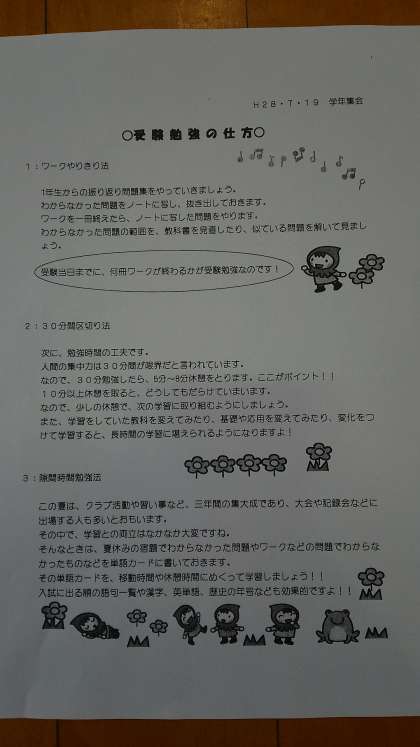 H28・7・19　学年集会
○受験勉強の仕方○
1：ワークやりきり法
1年生からの振り返り問題集をやっていきましょう。
わからなかった問題をノートに写し、抜き出しておきます。
ワークを一冊終えたら、ノートに写した問題をやります。
わからなかった問題の範囲を、教科書を見直したり、似ている問題を解いて見まし
ょう。
受験当日までに、何冊ワークが終わるかが受験勉強なのです！
2：30分間区切り法
次に、勉強時間の工夫です。
人間の集中力は30分間が限界だと言われています。
なので、30分勉強したら、5分～8分休憩をとります。ここがポイント！！
10分以上休憩を取ると、どうしてもだらけていまいます。
なので、少しの休憩で、次の学習に取り組むようにしましょう。
また、学習をしていた教科を変えてみたり、基礎や応用を変えてみたり、変化をつ
けて学習すると、長時間の学習に堪えられるようになりますよ！
3：隙間時間勉強法
この夏は、クラブ活動や習い事など、三年間の集大成であり、大会や記録会などに
出場する人も多いとおもいます。
その中で、学習との両立はなかなか大変ですね。
そんなときは、夏休みの宿題でわからなかった問題やワークなどの問題でわからな
かったものなどを単語カードに書いておきます。
その単語カードを、移動時間や休憩時間にめくって学習しましょう！！
入試に出る順の語句一覧や漢字、英単語、歴史の年号なども効果的ですよ！！